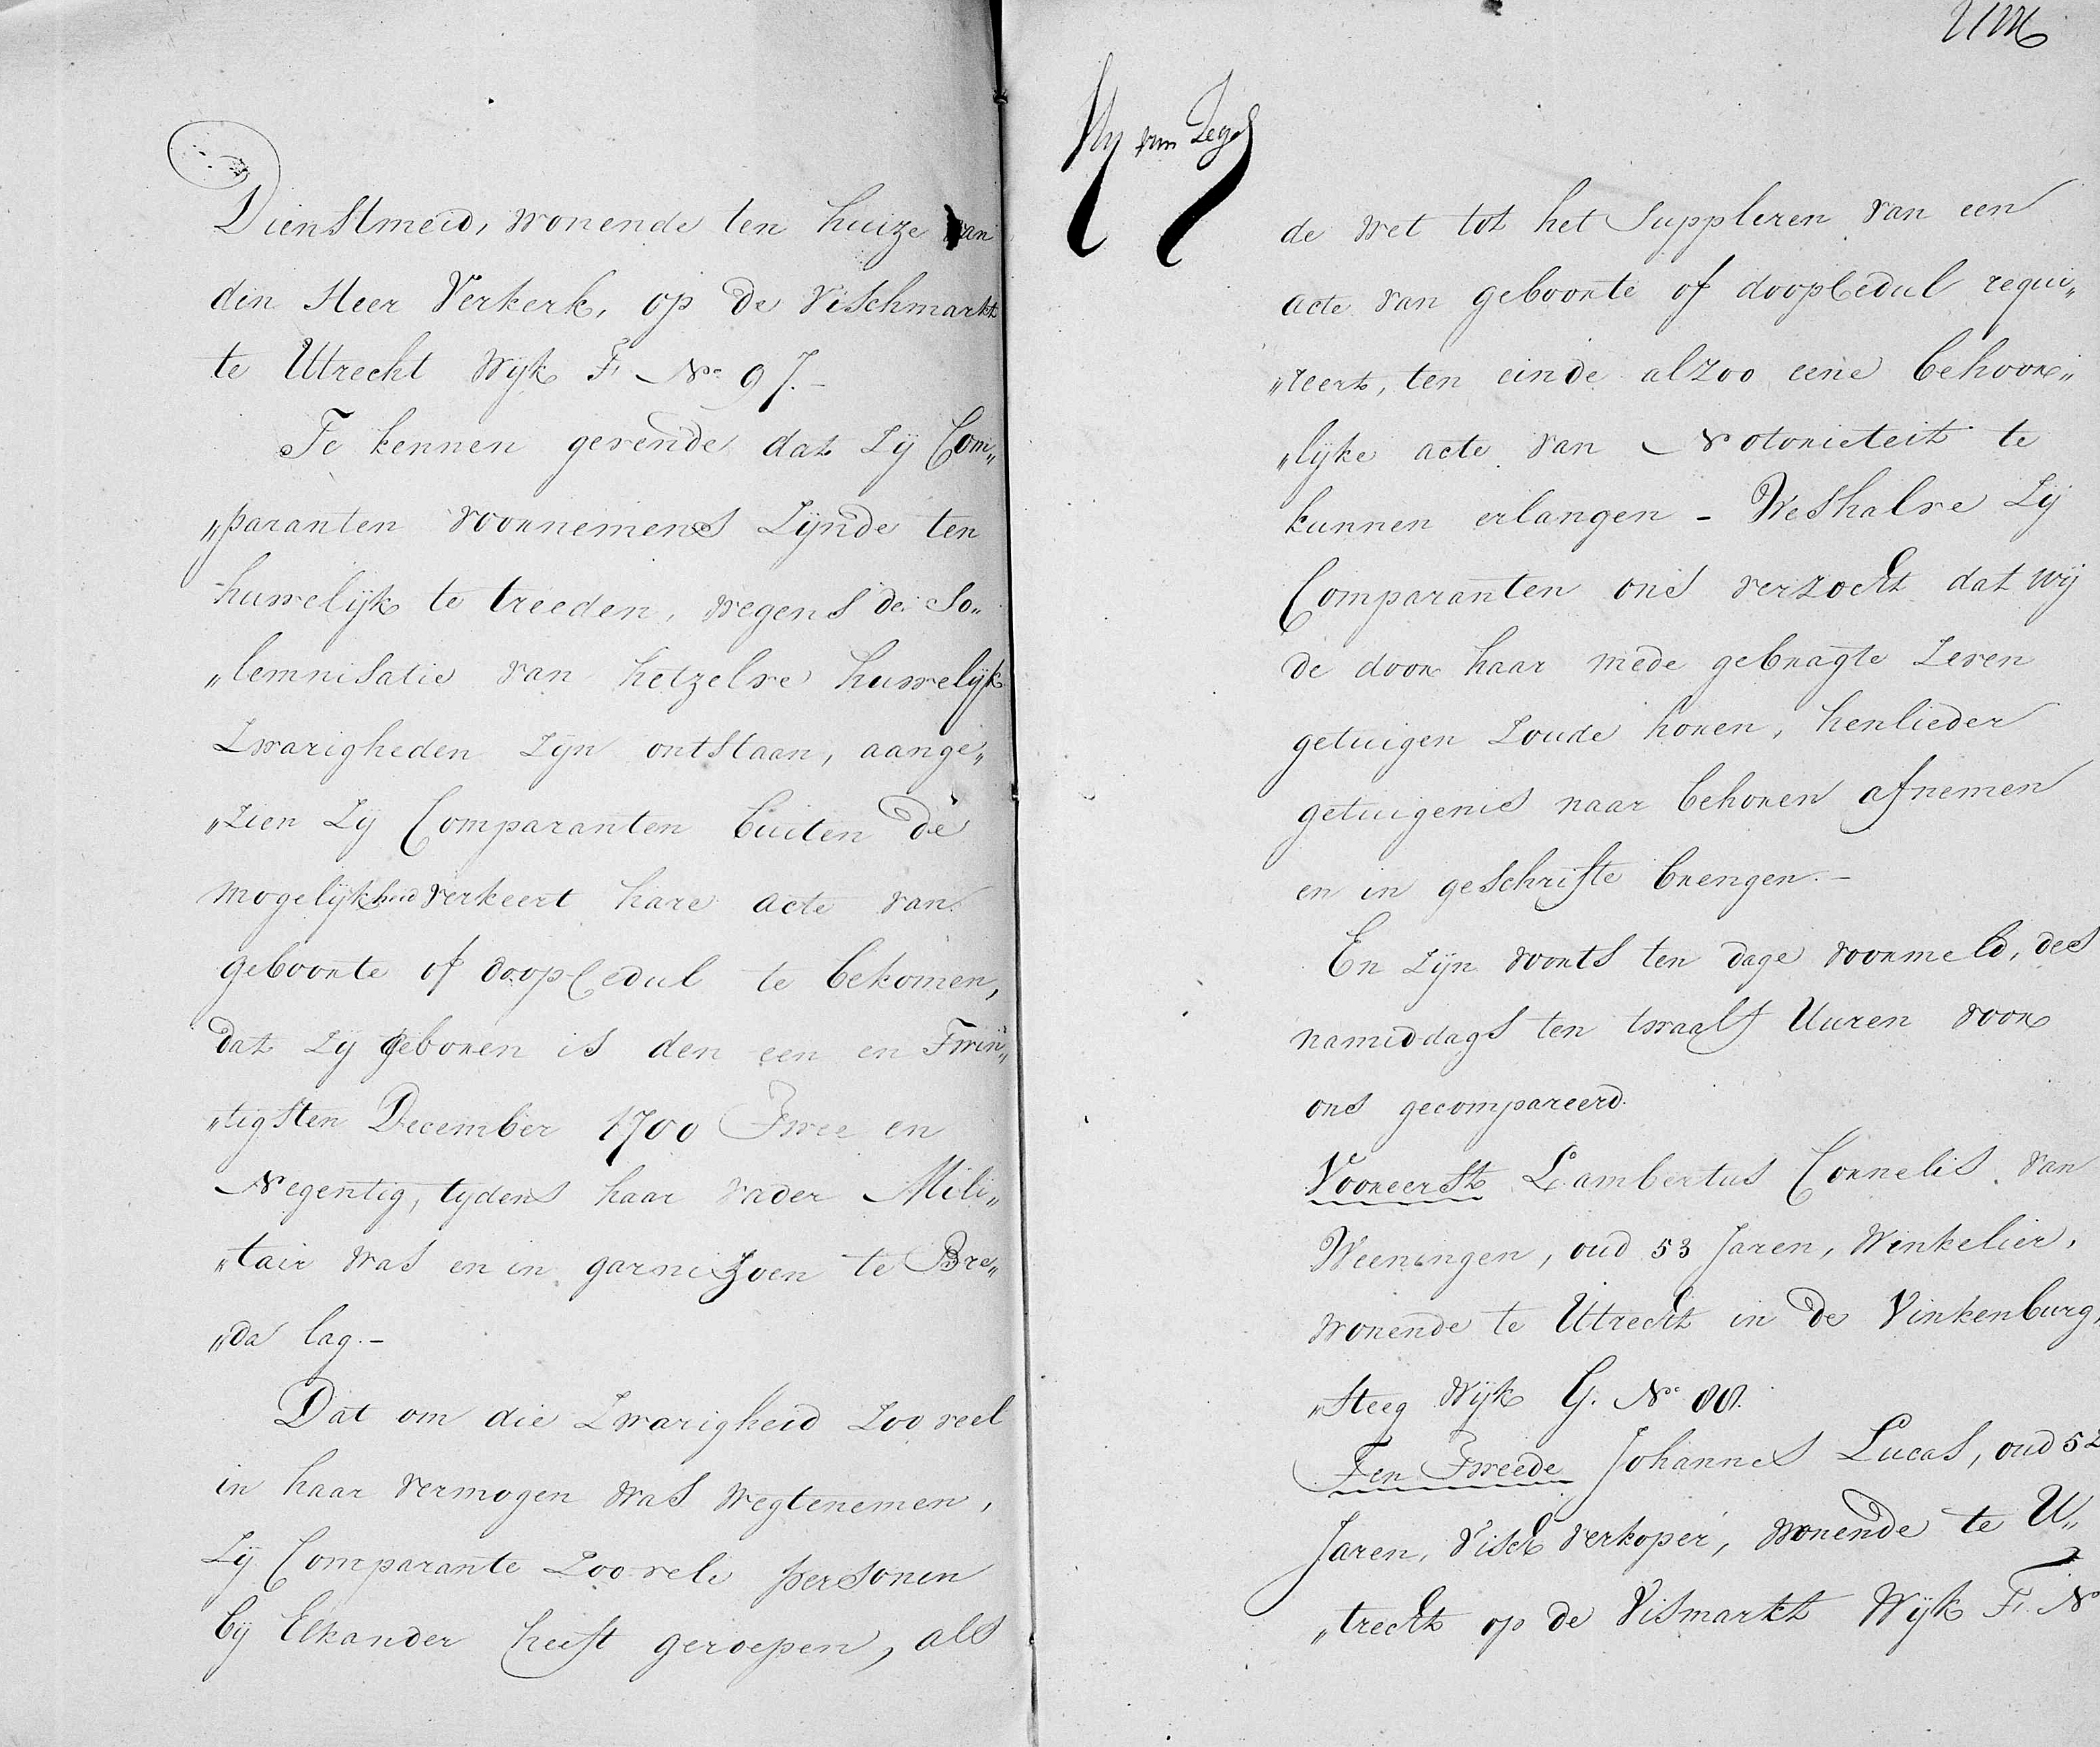 Dienstmeid, wonende ten huize van
den Heer Verkerk, op de Vischmarkt
te Utrecht Wijk F, No 97.-
Te kennen gevende dat zij Com„
„paranten voornemens zijnde ten
huwelijk te treeden, wegens de So„
„lemnisatie van hetzelve huwelijk
zwarigheden zijn ontstaan, aange„
„zien zij Comparanten buiten de
mogelijkheid verkeert hare acte van
geboorte of doopCedul te bekomen,
dat zij geboren is den een en Twin„
„tigsten December 1700 Twee en
Negentig, tydens haar vader Mili„
„tair was en in garnizoen te Bre„
„da lag.-
Dat om die zwarigheid zoo veel
in haar vermogen was wegtenemen,
zij Comparante zoo vele personen
bij Elkander heeft geroepen, als
Vry van Zegel
de wet tot het Suppleren van een
acte van geboorte of doopCedul requi„
„reert, ten einde alzoo eene behoor„
„lijke acte van Notorieteit te
kunnen erlangen - Weshalve zij
Comparanten ons verzocht dat wij
de door haar mede gebragte zeven
getuigen zoude horen, henlieder
getuigenis naar behoren afnemen
en in geschrifte brengen.-
En zijn voorts ten dage voormeld, des
namiddags ten twaalf Uuren voor
ons gecompareerd.
Vooreerst Lambertus Cornelis van
Weeningen, oud 53 Jaren, Winkelier,
wonende te Utrecht in de Vinkenburg„
„Steeg Wijk G. No 88.
Ten Tweede Johannes Lucas, oud 52
Jaren, Visch verkoper, wonende te U„
„trecht op de Vismarkt Wijk F. No